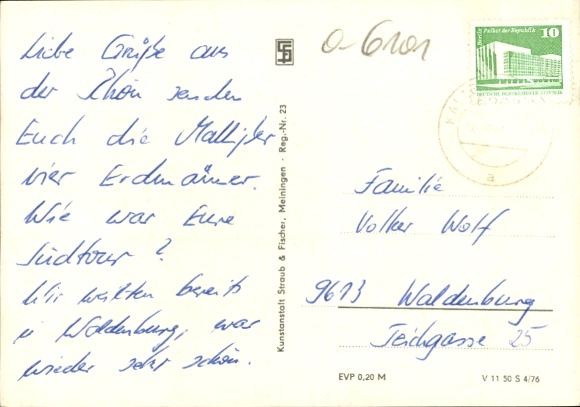 Liebe Grüße aus
der Rhön senden
Euch die
vier Erdmänner.
Wie war Eure
Südtour?
Wir weilten bereits
in Waldenburg, war
wieder sehr schön.
0-6101
Berlin Palast der Republik 10
DEUTSCHE DEMOKRATISCHE REPUBLIK
a
Familie
Volker Wolf
9613 Waldenburg
Teichgasse 25
Kunstanstalt Straub & Fischer, Meiningen · Reg.-Nr. 23
EVP 0,20 M
V 11 50 S 4/76